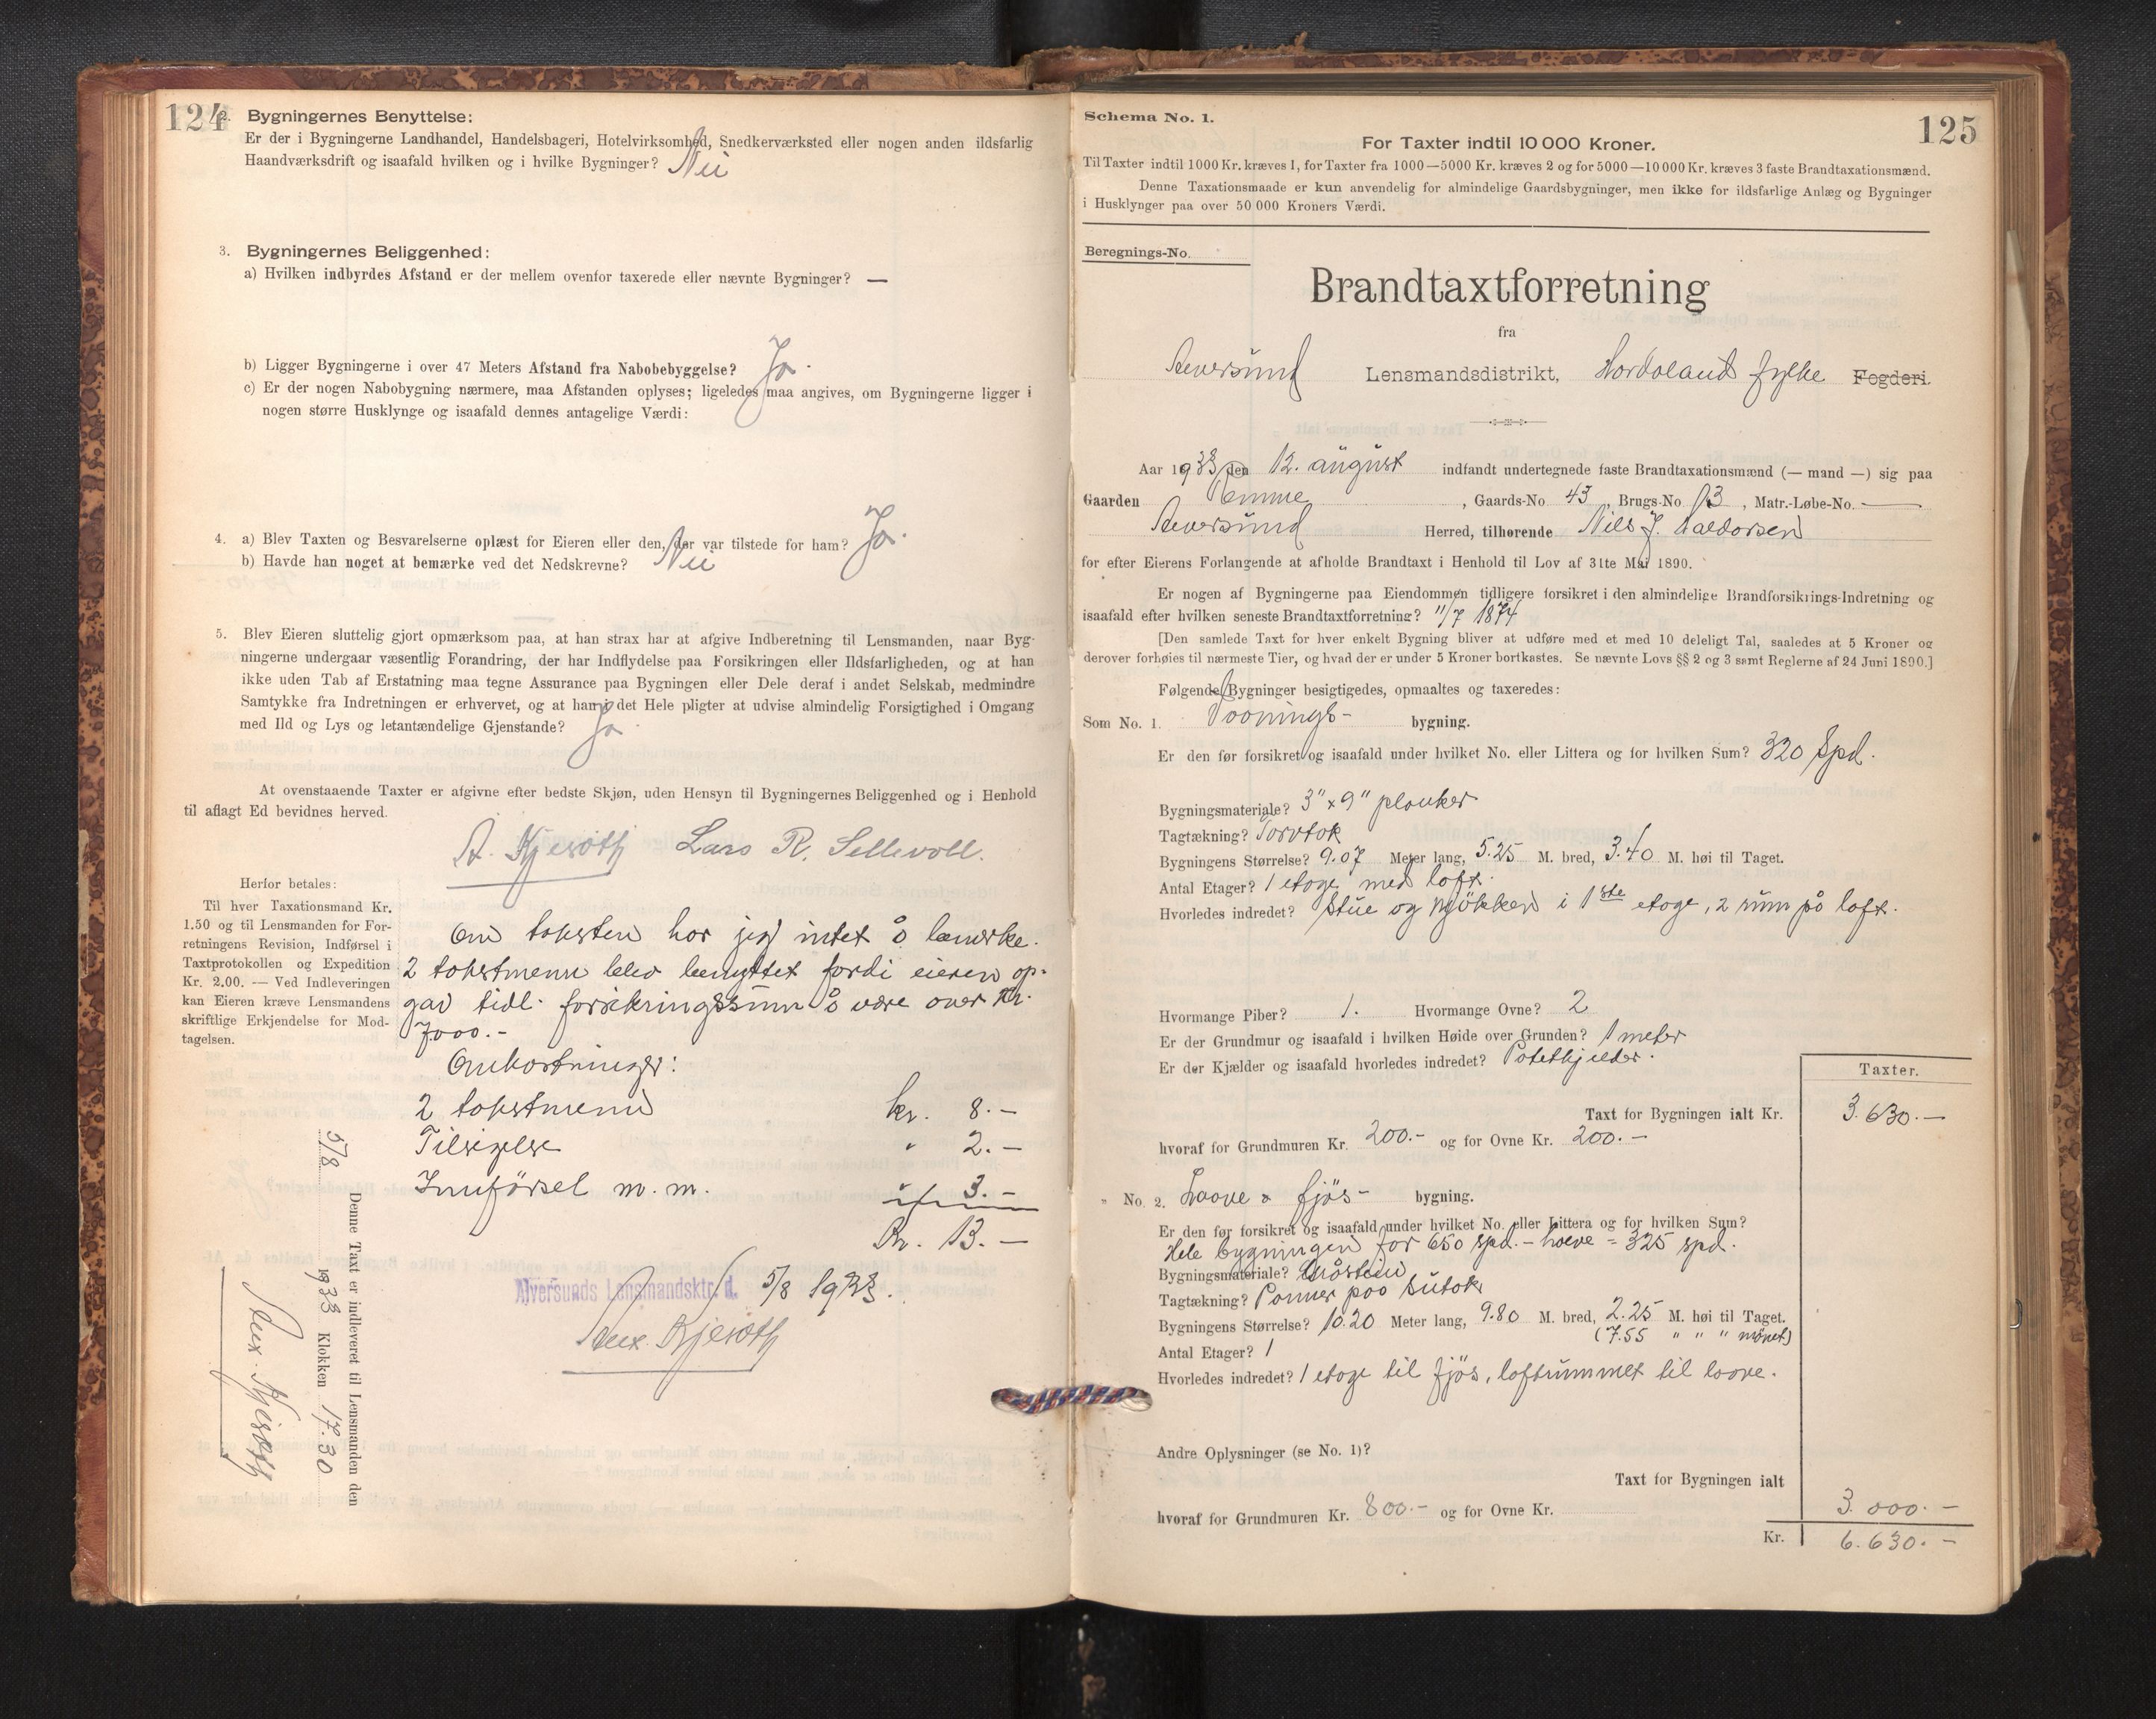 124
2. Bygningernes Benyttelse:
Er der i Bygningerne Landhandel, Handelsbageri, Hotelvirksomhed, Snedkerværksted eller nogen anden ildsfarlig
Haandværksdrift og isaafald hvilken og i hvilke Bygninger? Nei
3. Bygningernes Beliggenhed:
a) Hvilken indbyrdes Afstand er der mellem ovenfor taxerede eller nævnte Bygninger? —
b) Ligger Bygningerne i over 47 Meters Afstand fra Nabobebyggelse? Ja.
c) Er der nogen Nabobygning nærmere, maa Afstanden oplyses; ligeledes maa angives, om Bygningerne ligger i
nogen større Husklynge og isaafald dennes antagelige Værdi:
4. a) Blev Taxten og Besvarelserne oplæst for Eieren eller den, der var tilstede for ham? Ja.
b) Havde han noget at bemærke ved det Nedskrevne? Nei
5. Blev Eieren sluttelig gjort opmærksom paa, at han strax har at afgive Indberetning til Lensmanden, naar Byg-
ningerne undergaar væsentlig Forandring, der har Indflydelse paa Forsikringen eller Ildsfarligheden, og at han
ikke uden Tab af Erstatning maa tegne Assurance paa Bygningen eller Dele deraf i andet Selskab, medmindre
Samtykke fra Indretningen er erhvervet, og at han i det Hele pligter at udvise almindelig Forsigtighed i Omgang
med Ild og Lys og letantændelige Gjenstande? Ja
At ovenstaaende Taxter er afgivne efter bedste Skjøn, uden Hensyn til Bygningernes Beliggenhed og i Henhold
til aflagt Ed bevidnes herved.
A. Kjeroth Lars R. Sellevoll.
Herfor betales:
Til hver Taxationsmand Kr.
1.50 og til Lensmanden for For-
retningens Revision, Indførsel i
Taxtprotokollen og Expedition
Kr. 2.00. — Ved Indleveringen
kan Eieren kræve Lensmandens
skriftlige Erkjendelse for Mod-
tagelsen.
Om taksten har jeg intet å bemerke.
2 takstmenn blev benyttet fordi eieren op-
gav tidl. forsikringssum å være over kr.
7000.-
Omkostninger:
2 takstmenn kr. 8.-
Tilsigelse " 2.-
Innførsel m.m. " 3.-
Kr. 13.-
Alversunds Lensmandsktr. d. 5/8 1933.
Alex. Kjeroth
Denne Taxt er indleveret til Lensmanden den
5/8 1933 Klokken 17.30
Alex. Kjeroth
125
Schema No. 1.
For Taxter indtil 10 000 Kroner.
Til Taxter indtil 1000 Kr. kræves 1, for Taxter fra 1000—5000 Kr. kræves 2 og for 5000—10000 Kr. kræves 3 faste Brandtaxationsmænd.
Denne Taxationsmaade er kun anvendelig for almindelige Gaardsbygninger, men ikke for ildsfarlige Anlæg og Bygninger
i Husklynger paa over 50 000 Kroners Værdi.
Beregnings-No.
Brandtaxtforretning
fra
Alversund Lensmandsdistrikt, Hordaland fylke Fogderi.
Aar 1933 den 12. august indfandt undertegnede faste Brandtaxationsmænd (— mand —) sig paa
Gaarden Remme, Gaards-No 43, Brugs-No 13, Matr.-Løbe-No. —
Alversund Herred, tilhørende Nils J. Haldorsen
for efter Eierens Forlangende at afholde Brandtaxt i Henhold til Lov af 31te Mai 1890.
Er nogen af Bygningerne paa Eiendommen tidligere forsikret i den almindelige Brandforsikrings-Indretning og
isaafald efter hvilken seneste Brandtaxtforretning? 11/7 1874
[Den samlede Taxt for hver enkelt Bygning bliver at udføre med et med 10 deleligt Tal, saaledes at 5 Kroner og
derover forhøies til nærmeste Tier, og hvad der er under 5 Kroner bortkastes. Se nævnte Lovs §§ 2 og 3 samt Reglerne af 24 Juni 1890.]
Følgende Bygninger besigtigedes, opmaaltes og taxeredes:
Som No. 1. Vaanings- bygning.
Er den før forsikret og isaafald under hvilket No. eller Littera og for hvilken Sum? 320 Spd.
Bygningsmateriale? 3" x 9" planker
Tagtækning? Torvtak
Bygningens Størrelse? 9.07 Meter lang, 5.25 M. bred, 3.40 M. høi til Taget.
Antal Etager? 1 etage med loft.
Hvorledes indredet? Stue og kjøkken i 1ste etage, 2 rum på loft.
Hvormange Piber? 1. Hvormange Ovne? 2
Er der Grundmur og isaafald i hvilken Høide over Grunden? 1 meter
Er der Kjælder og isaafald hvorledes indredet? Potetkjeller.
Taxter.
Taxt for Bygningen ialt Kr. 3.630.—
hvoraf for Grundmuren Kr. 200.- og for Ovne Kr. 200.—
" No. 2. Laave & fjös- bygning.
Er den før forsikret og isaafald under hvilket No. eller Littera og for hvilken Sum?
Hele bygningen for 650 spd. - halve = 325 spd.
Bygningsmateriale? Gråstein
Tagtækning? Panner paa sutak
Bygningens Størrelse? 10.20 Meter lang, 9.80 M. bred, 2.25 M. høi til Taget.
(7.55 " " " mönet)
Antal Etager? 1
Hvorledes indredet? 1 etage til fjös, loftrummet til laave.
Andre Oplysninger (se No. 1)?
Taxt for Bygningen ialt
hvoraf for Grundmuren Kr. 800.- og for Ovne Kr. 3.000.-
Kr. 6.630.-